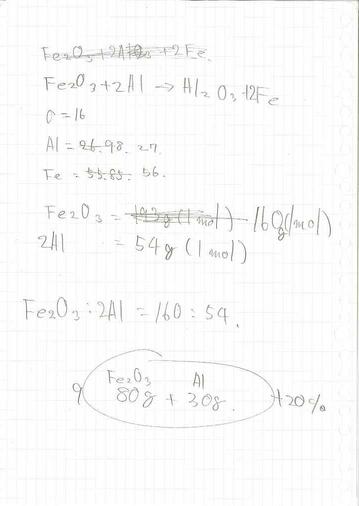 Fe₂O₃+2Al → Al₂O₃+2Fe
O=16
Al = 26.98. 27.
Fe = 55.85. 56.
Fe₂O₃ = 160g(1mol)
2Al = 54g (1mol)
Fe₂O₃ : 2Al = 160 : 54.
Fe₂O₃ Al
80g + 30g. +20%